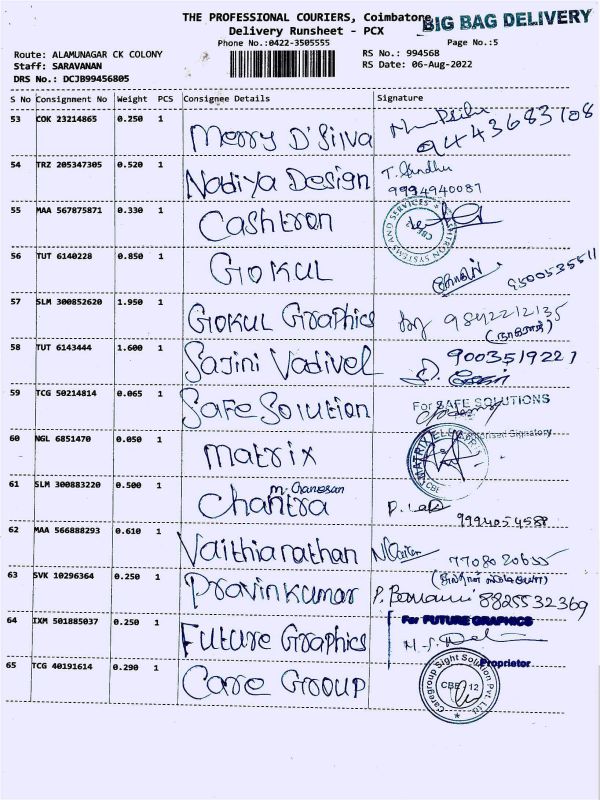 THE PROFESSIONAL COURIERS, Coimbatore
BIG BAG DELIVERY
Delivery Runsheet - PCX
Phone No.:0422-3505555
Page No.:5
Route: ALAMUNAGAR CK COLONY
RS No.: 994568
Staff: SARAVANAN
RS Date: 06-Aug-2022
DRS No.: DCJB99456805
S No Consignment No Weight PCS Consignee Details Signature
53 COK 23214865 0.250 1 Merry D'Silva 9443683108
54 TRZ 205347305 0.520 1 Nadiya Design T. Sandhu
9994940087
55 MAA 567875871 0.330 1 Cashtron
CBE
56 TUT 6140228 0.850 1 GOKUL 9500535511
57 SLM 300852620 1.950 1 GOKUL Graphics 9842212135
58 TUT 6143444 1.600 1 Sajini Vadivel 9003519221
59 TCG 50214814 0.065 1 Safe Solution For SAFE SOLUTIONS
Authorised Signatory
60 NGL 6851470 0.050 1 matrix MATRIX
CBE
61 SLM 300883220 0.500 1 m. Ganesan
Chantra
62 MAA 566888293 0.610 1 Vaithianathan 7708020655
63 SVK 10296364 0.250 1 Pravinkumar 8825532369
64 IXM 501885037 0.250 1 Future Graphics For FUTURE GRAPHICS
Proprietor
65 TCG 40191614 0.290 1 Care Group Caregroup Sight Solution Pvt. Ltd
CBE 12